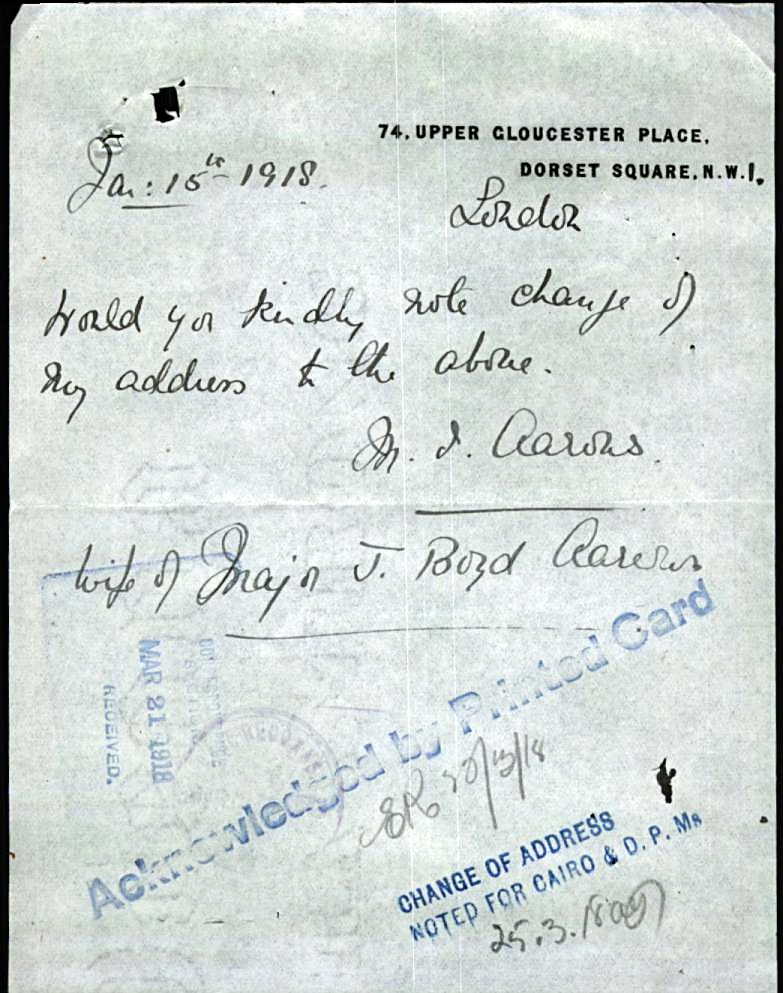 74, UPPER GLOUCESTER PLACE,
DORSET SQUARE, N.W.1.
London
Jan: 15th 1918.
Would you kindly note change of
my address to the above.
M. I. Aarons.
Wife of Major J. Boyd Aarons
MAR 21 1918
RECEIVED.
Acknowledged by Printed Card
CHANGE OF ADDRESS
NOTED FOR CAIRO & D. P. Ms
25.3.